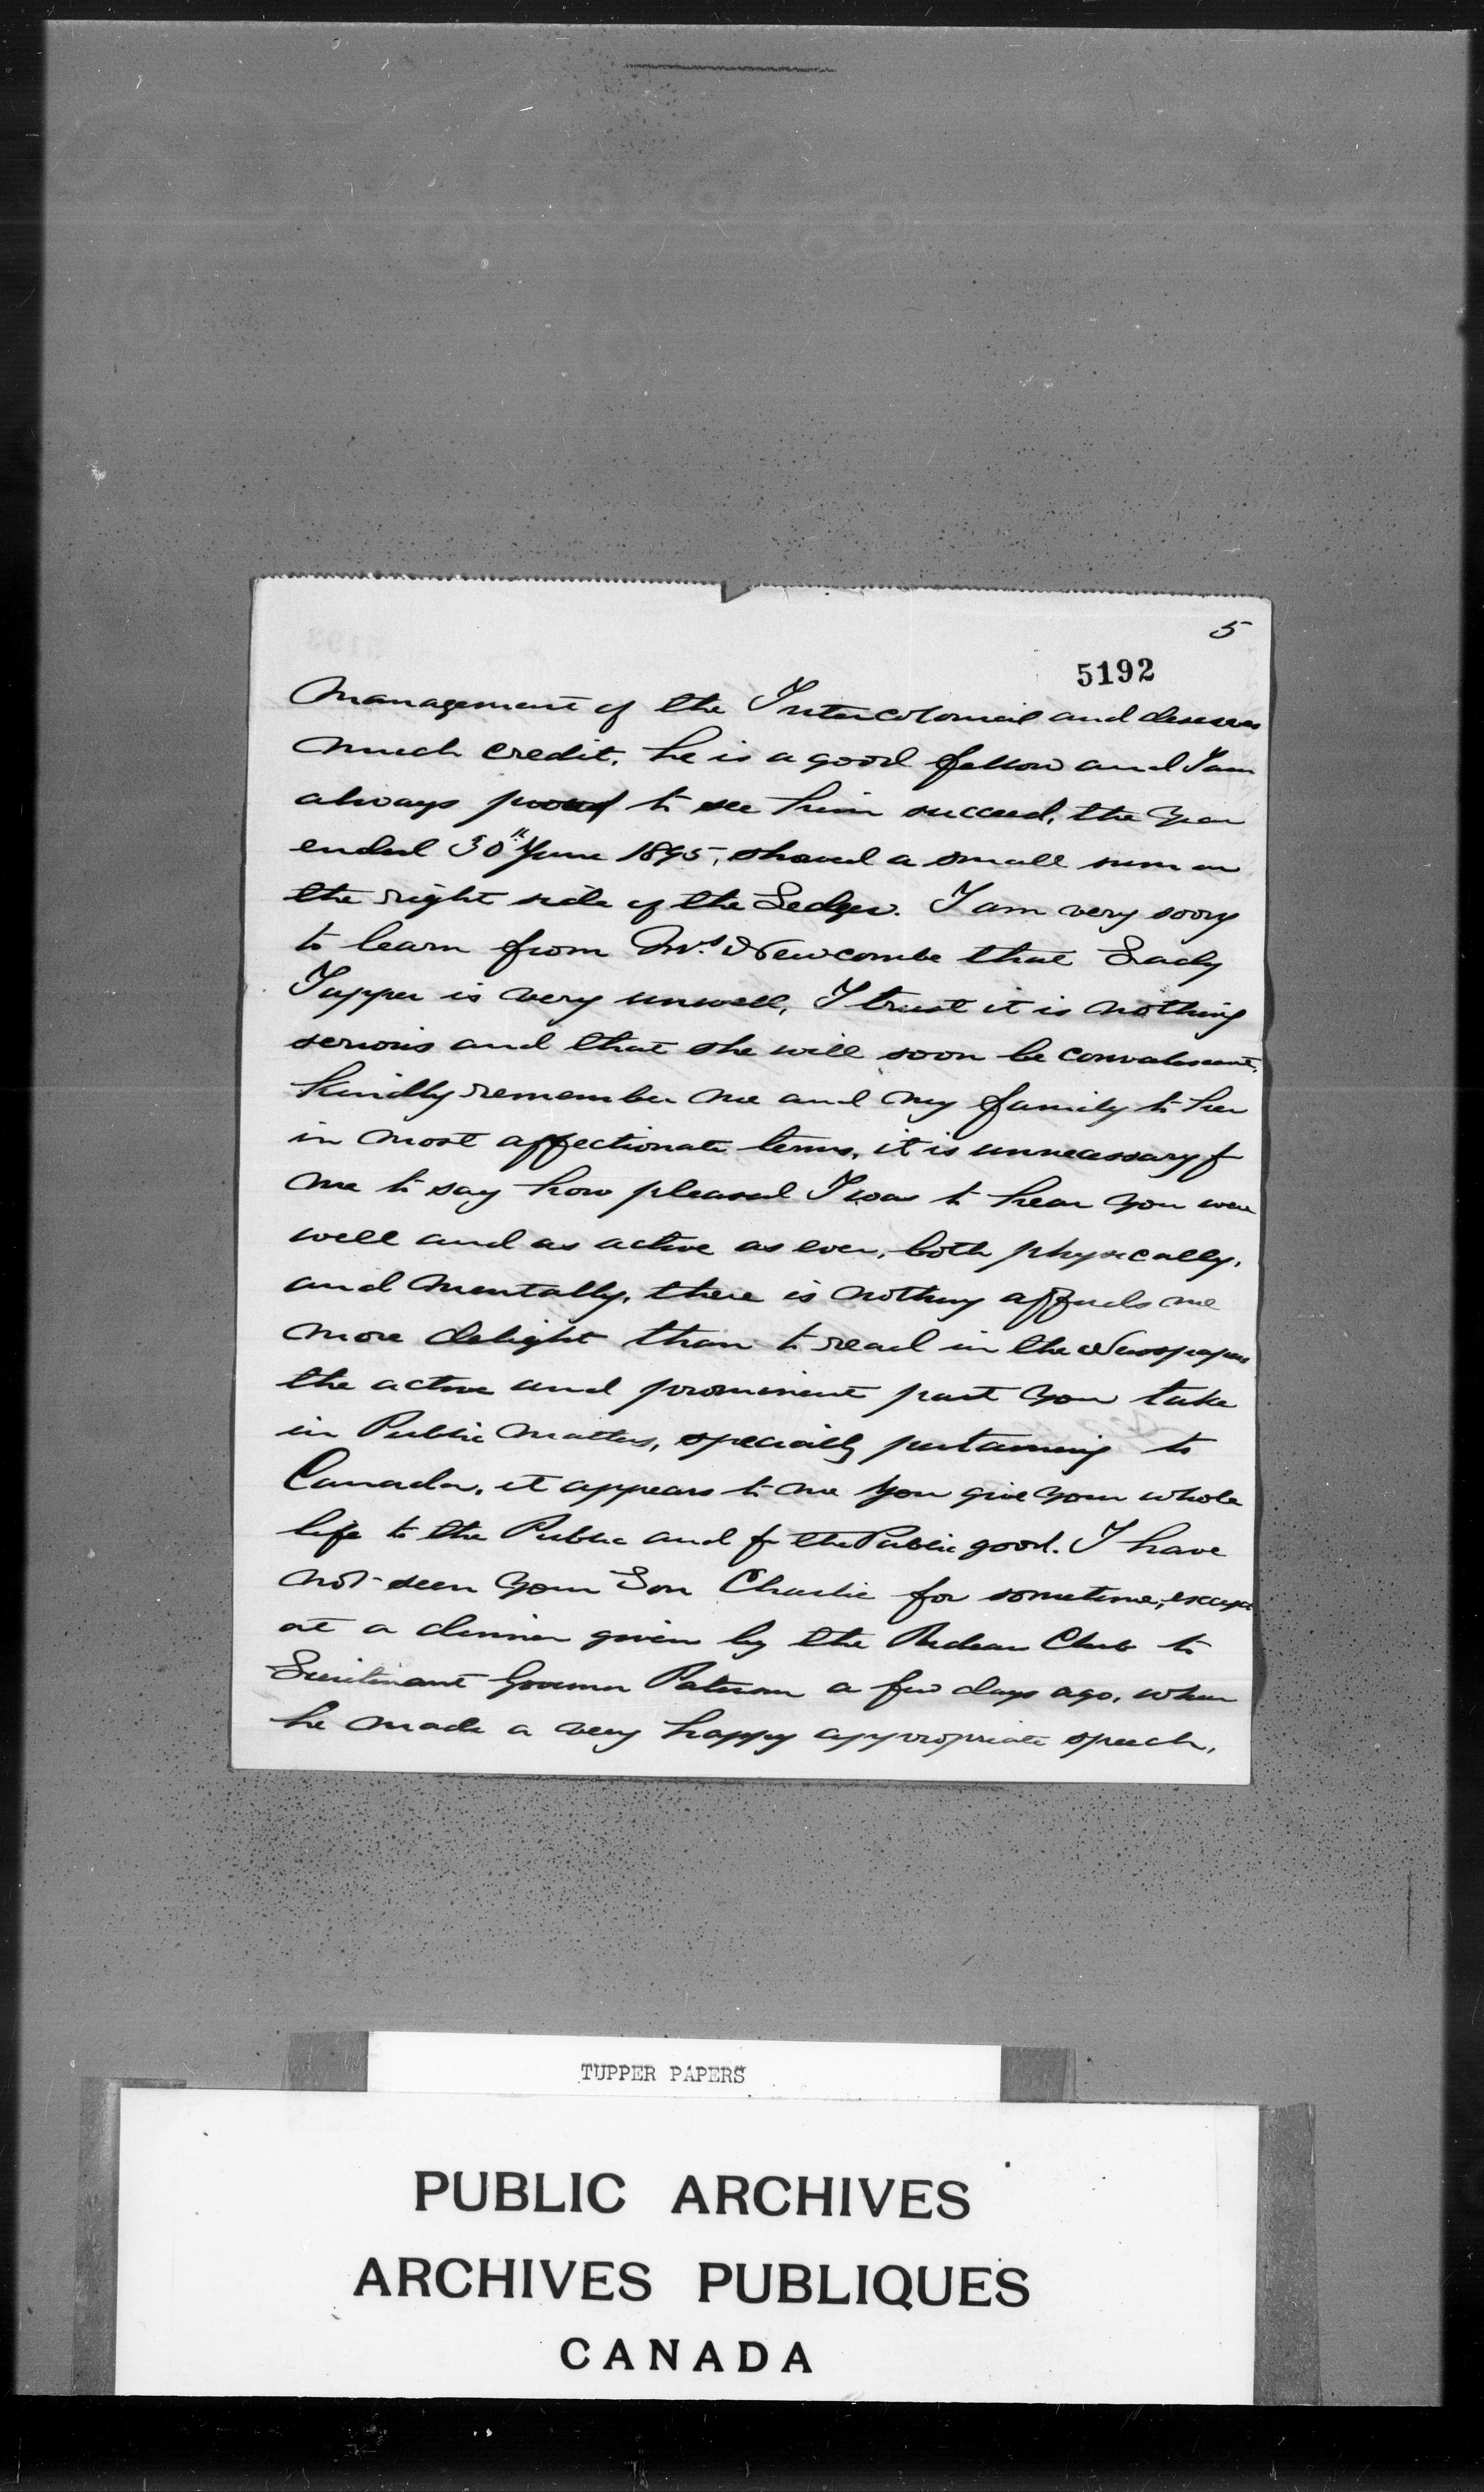 5
5192
Management of the Intercolonial and deserves
much credit, he is a good fellow and I am
always proud to see him succeed, the year
ended 30th June 1895, showed a small sum on
the right side of the Ledger. I am very sorry
to learn from Mrs Newcombe that Lady
Tupper is very unwell, I trust it is nothing
serious and that she will soon be convalescent,
kindly remember me and my family to her
in most affectionate terms, it is unnecessary for
me to say how pleased I was to hear you were
well and as active as ever, both physically,
and mentally, there is nothing affords me
more delight than to read in the Newspapers
the active and prominent part you take
in Public Matters, specially pertaining to
Canada, it appears to me you give your whole
life to the Public and for the Public good. I have
not seen your Son Charlie for sometime, except
at a dinner given by the Rideau Club to
Lieutenant Governor Paterson a few days ago, when
he made a very happy appropriate speech,
TUPPER PAPERS
PUBLIC ARCHIVES
ARCHIVES PUBLIQUES
CANADA